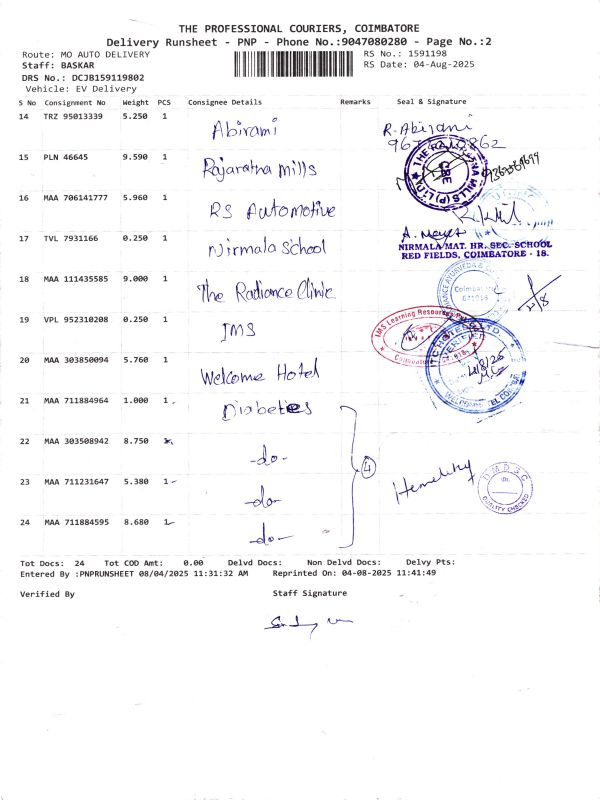 THE PROFESSIONAL COURIERS, COIMBATORE
Delivery Runsheet - PNP - Phone No.:9047080280 - Page No.:2
Route: MO AUTO DELIVERY
RS No.: 1591198
Staff: BASKAR
RS Date: 04-Aug-2025
DRS No.: DCJB159119802
Vehicle: EV Delivery
S No Consignment No Weight PCS Consignee Details Remarks Seal & Signature
14 TRZ 95013339 5.250 1 Abirami R. Abirami
15 PLN 46645 9.590 1 Rajaratna mills
16 MAA 706141777 5.960 1 RS Automotive
17 TVL 7931166 0.250 1 Nirmala School
NIRMALA MAT. HR. SEC. SCHOOL
RED FIELDS, COIMBATORE - 18.
18 MAA 111435585 9.000 1 The Radiance Clinic
19 VPL 952310208 0.250 1 IMS
IMS Learning Resources
20 MAA 303850094 5.760 1 Welcome Hotel
21 MAA 711884964 1.000 1 Diabeties
22 MAA 303508942 8.750 1 -do- 4
23 MAA 711231647 5.380 1 -do-
D M D S C
QUALITY CHECKED
24 MAA 711884595 8.680 1 -do-
Tot Docs: 24 Tot COD Amt: 0.00 Delvd Docs: Non Delvd Docs: Delvy Pts:
Entered By :PNPRUNSHEET 08/04/2025 11:31:32 AM Reprinted On: 04-08-2025 11:41:49
Verified By Staff Signature